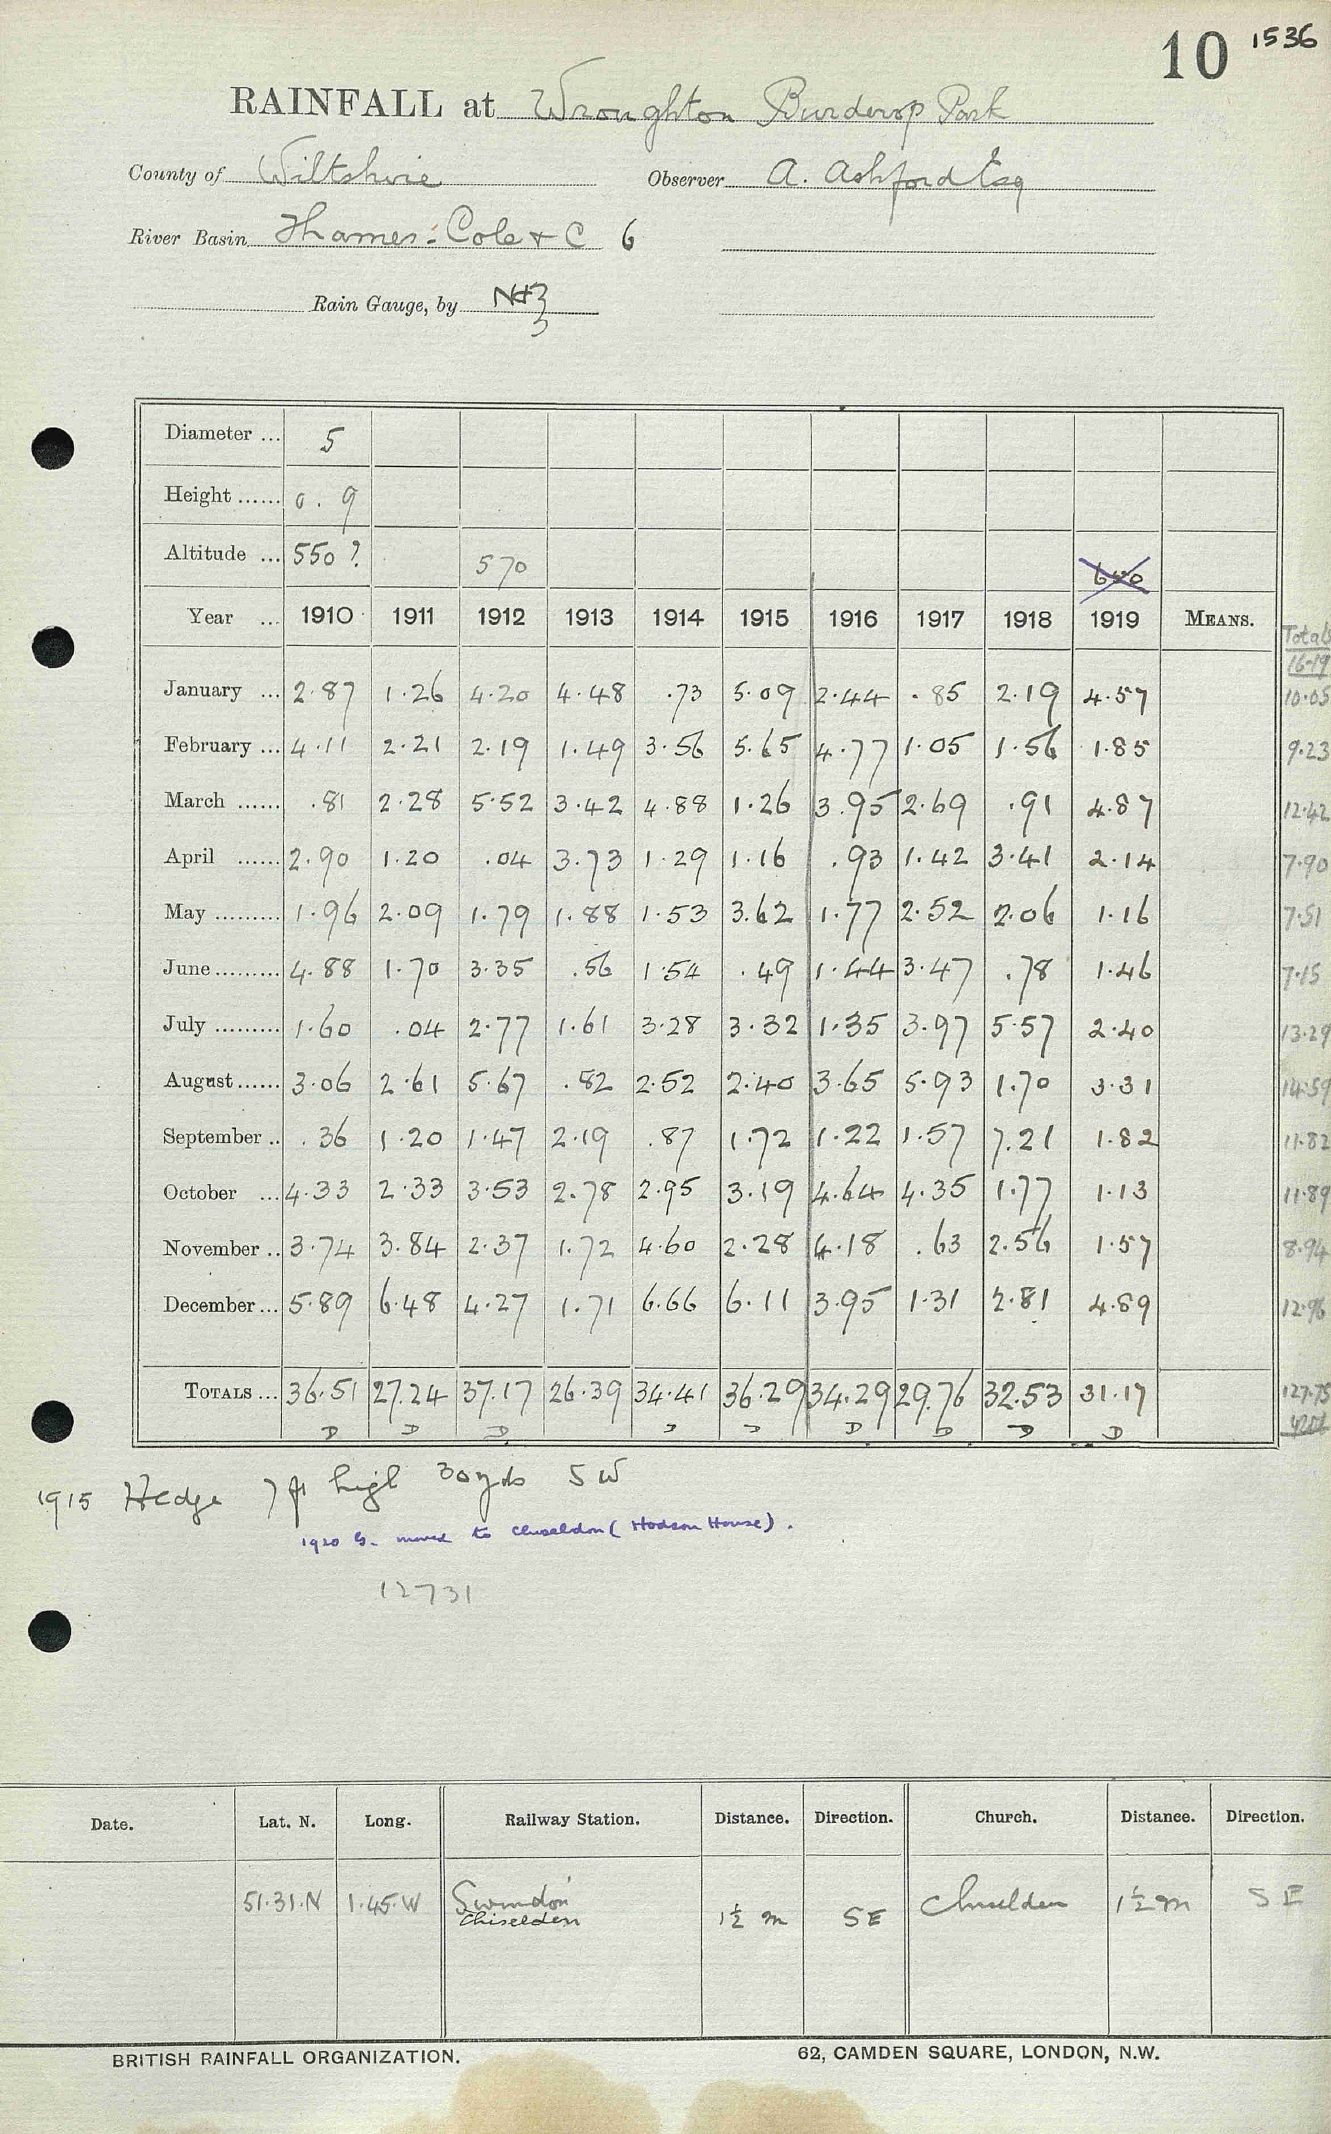 10 1536
RAINFALL at Wroughton Burderop Park
County of Wiltshire Observer A. Ashford Esq
River Basin Thames - Cole & C 6
Rain Gauge, by N&Z
Diameter ... 5
Height ...... 0.9
Altitude ... 550 ? 570 600
Year ... 1910 1911 1912 1913 1914 1915 1916 1917 1918 1919 MEANS. Totals 16-19
January ... 2.87 1.26 4.20 4.48 .73 5.09 2.44 .85 2.19 4.57 10.05
February ... 4.11 2.21 2.19 1.49 3.56 5.65 4.77 1.05 1.56 1.85 9.23
March ...... .81 2.28 5.52 3.42 4.88 1.26 3.95 2.69 .91 4.87 12.42
April ...... 2.90 1.20 .04 3.73 1.29 1.16 .93 1.42 3.41 2.14 7.90
May ......... 1.96 2.09 1.79 1.88 1.53 3.62 1.77 2.52 2.06 1.16 7.51
June ......... 4.88 1.70 3.35 .56 1.54 .49 1.44 3.47 .78 1.46 7.15
July ......... 1.60 .04 2.77 1.61 3.28 3.32 1.35 3.97 5.57 2.40 13.29
August ...... 3.06 2.61 5.67 .82 2.52 2.40 3.65 5.93 1.70 3.31 14.59
September .. .36 1.20 1.47 2.19 .87 1.72 1.22 1.57 7.21 1.82 11.82
October ... 4.33 2.33 3.53 2.78 2.95 3.19 4.64 4.35 1.77 1.13 11.89
November .. 3.74 3.84 2.37 1.72 4.60 2.28 4.18 .63 2.56 1.57 8.94
December ... 5.89 6.48 4.27 1.71 6.66 6.11 3.95 1.31 2.81 4.89 12.96
TOTALS ... 36.51 27.24 37.17 26.39 34.41 36.29 34.29 29.76 32.53 31.17 127.75
D D D D D D D D D
1915 Hedge 7 ft high 30 yds SW
1920 G. moved to Chiseldon (Hodson House).
12731
Date. Lat. N. Long. Railway Station. Distance. Direction. Church. Distance. Direction.
51.31.N 1.45.W Swindon Chiselden 1½ m SE Chiselden 1½ m SE
BRITISH RAINFALL ORGANIZATION. 62, CAMDEN SQUARE, LONDON, N.W.